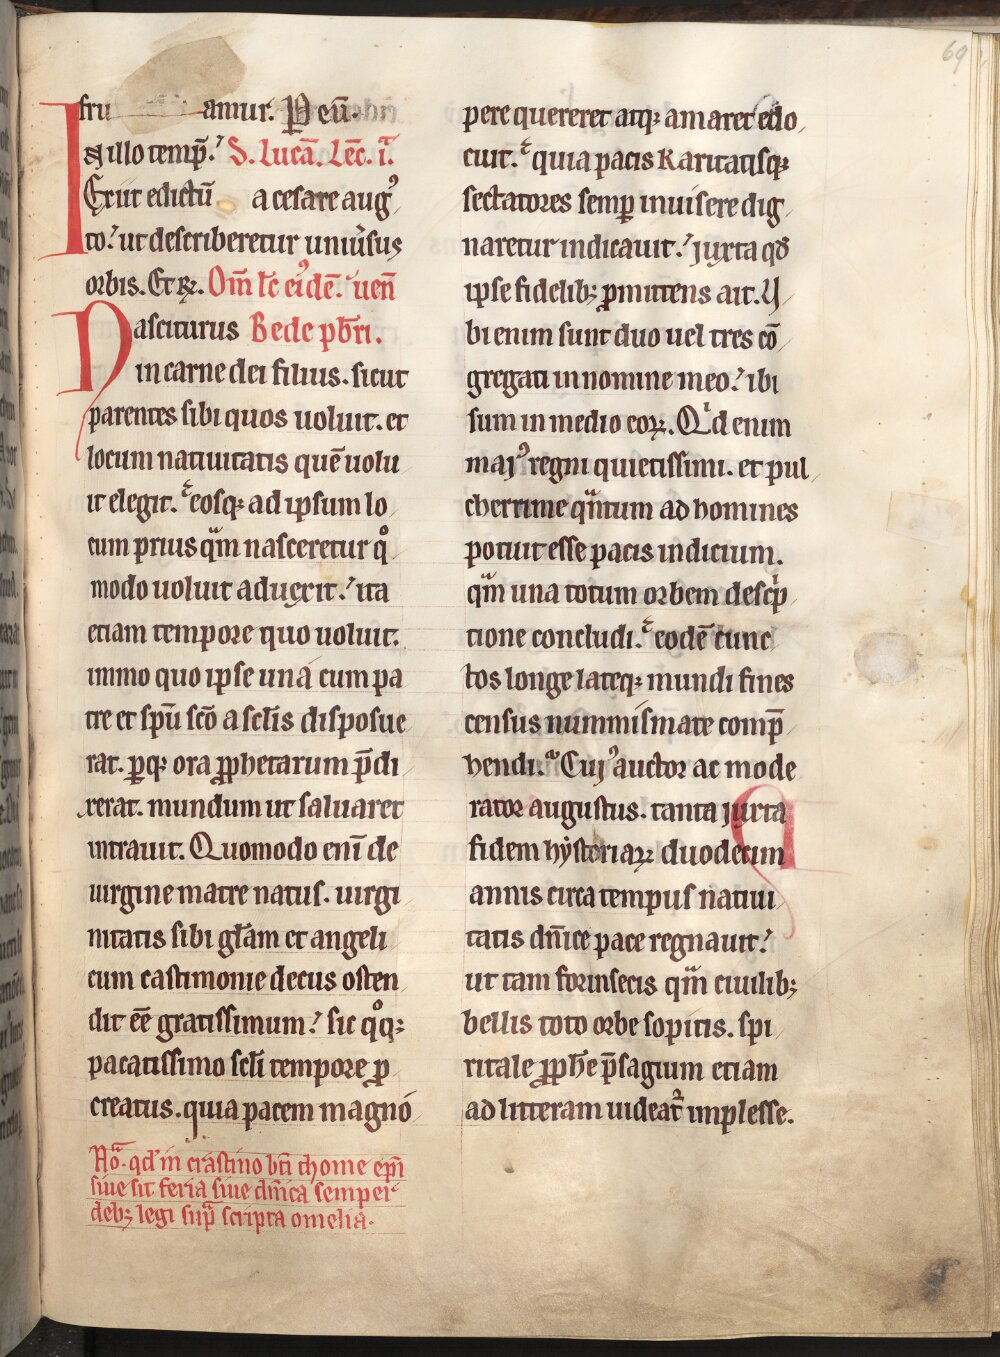 fru amur. P eū.
In illo temp̄. S. Lucā. Lēc. i.
Exiit edictū a cesare aug
to. ut describeretur uniu̓sus
orbis. Et R. Om̄ lc̄ ei̓dē. uen̄
Nasciturus Bede pb̄ri.
in carne dei filius. sicut
parentes sibi quos uoluit. et
locum natiuitatis quē uolu
it elegit. eosq; ad ipsum lo
cum prius qm̄ nasceretur qͦ
modo uoluit aduexit. ita
etiam tempore quo uoluit.
immo quo ipse una cum pa
tre et spū scō a sclīs disposue
rat. ꝑq; ora ꝓphetarum p̄di
xerat. mundum ut saluaret
intrauit. Quomodo eni̅ de
uirgine matre natus. uirgi
nitatis sibi glām et angeli
cum castimonie decus osten
dit eē gratissimum. sic qͦq;
pacatissimo sclī tempore ꝓ
creatus. quia pacem magno
Nōa. qd in crastino bti thome ep̄i
siue sit feria siue dn̄ica semper
deb; legi sup̄ scripta omelia.
pere quereret atq; amaret edo
cuit. quia pacis Karitatisq;
sectatores semꝑ inuisere dig
naretur indicauit. juxta qd
ipse fidelib; ꝓmittens ait. U
bi enim sunt duo uel tres cō
gregati in nomine meo. ibi
sum in medio eoꝝ. Qid enim
maj᾿ regni quietissimi. et pul
cherrime qn̄tum ad homines
potuit esse pacis indicium.
qm̄ una totum orbem descp̓
tione concludi. eodē cunc
tos longe lateq; mundi fines
census nummismate comp̄
hendi. Cuj᾿ auctor ac mode
rator augustus. tanta juxta
fidem hystoriaꝝ duodecim
annis circa tempus natiui
tatis dn̄ice pace regnauit.
ut tam forinsecis qm̄ ciuilib;
bellis toto orbe sopitis. spi
ritale ꝓphē p̄sagium etiam
ad litteram uideat᾿ implesse.
69